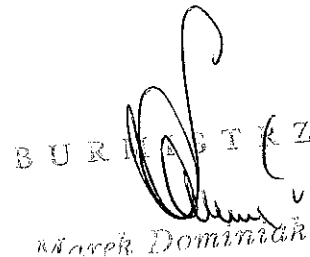 BURMISTRZ
Marek Dominiak